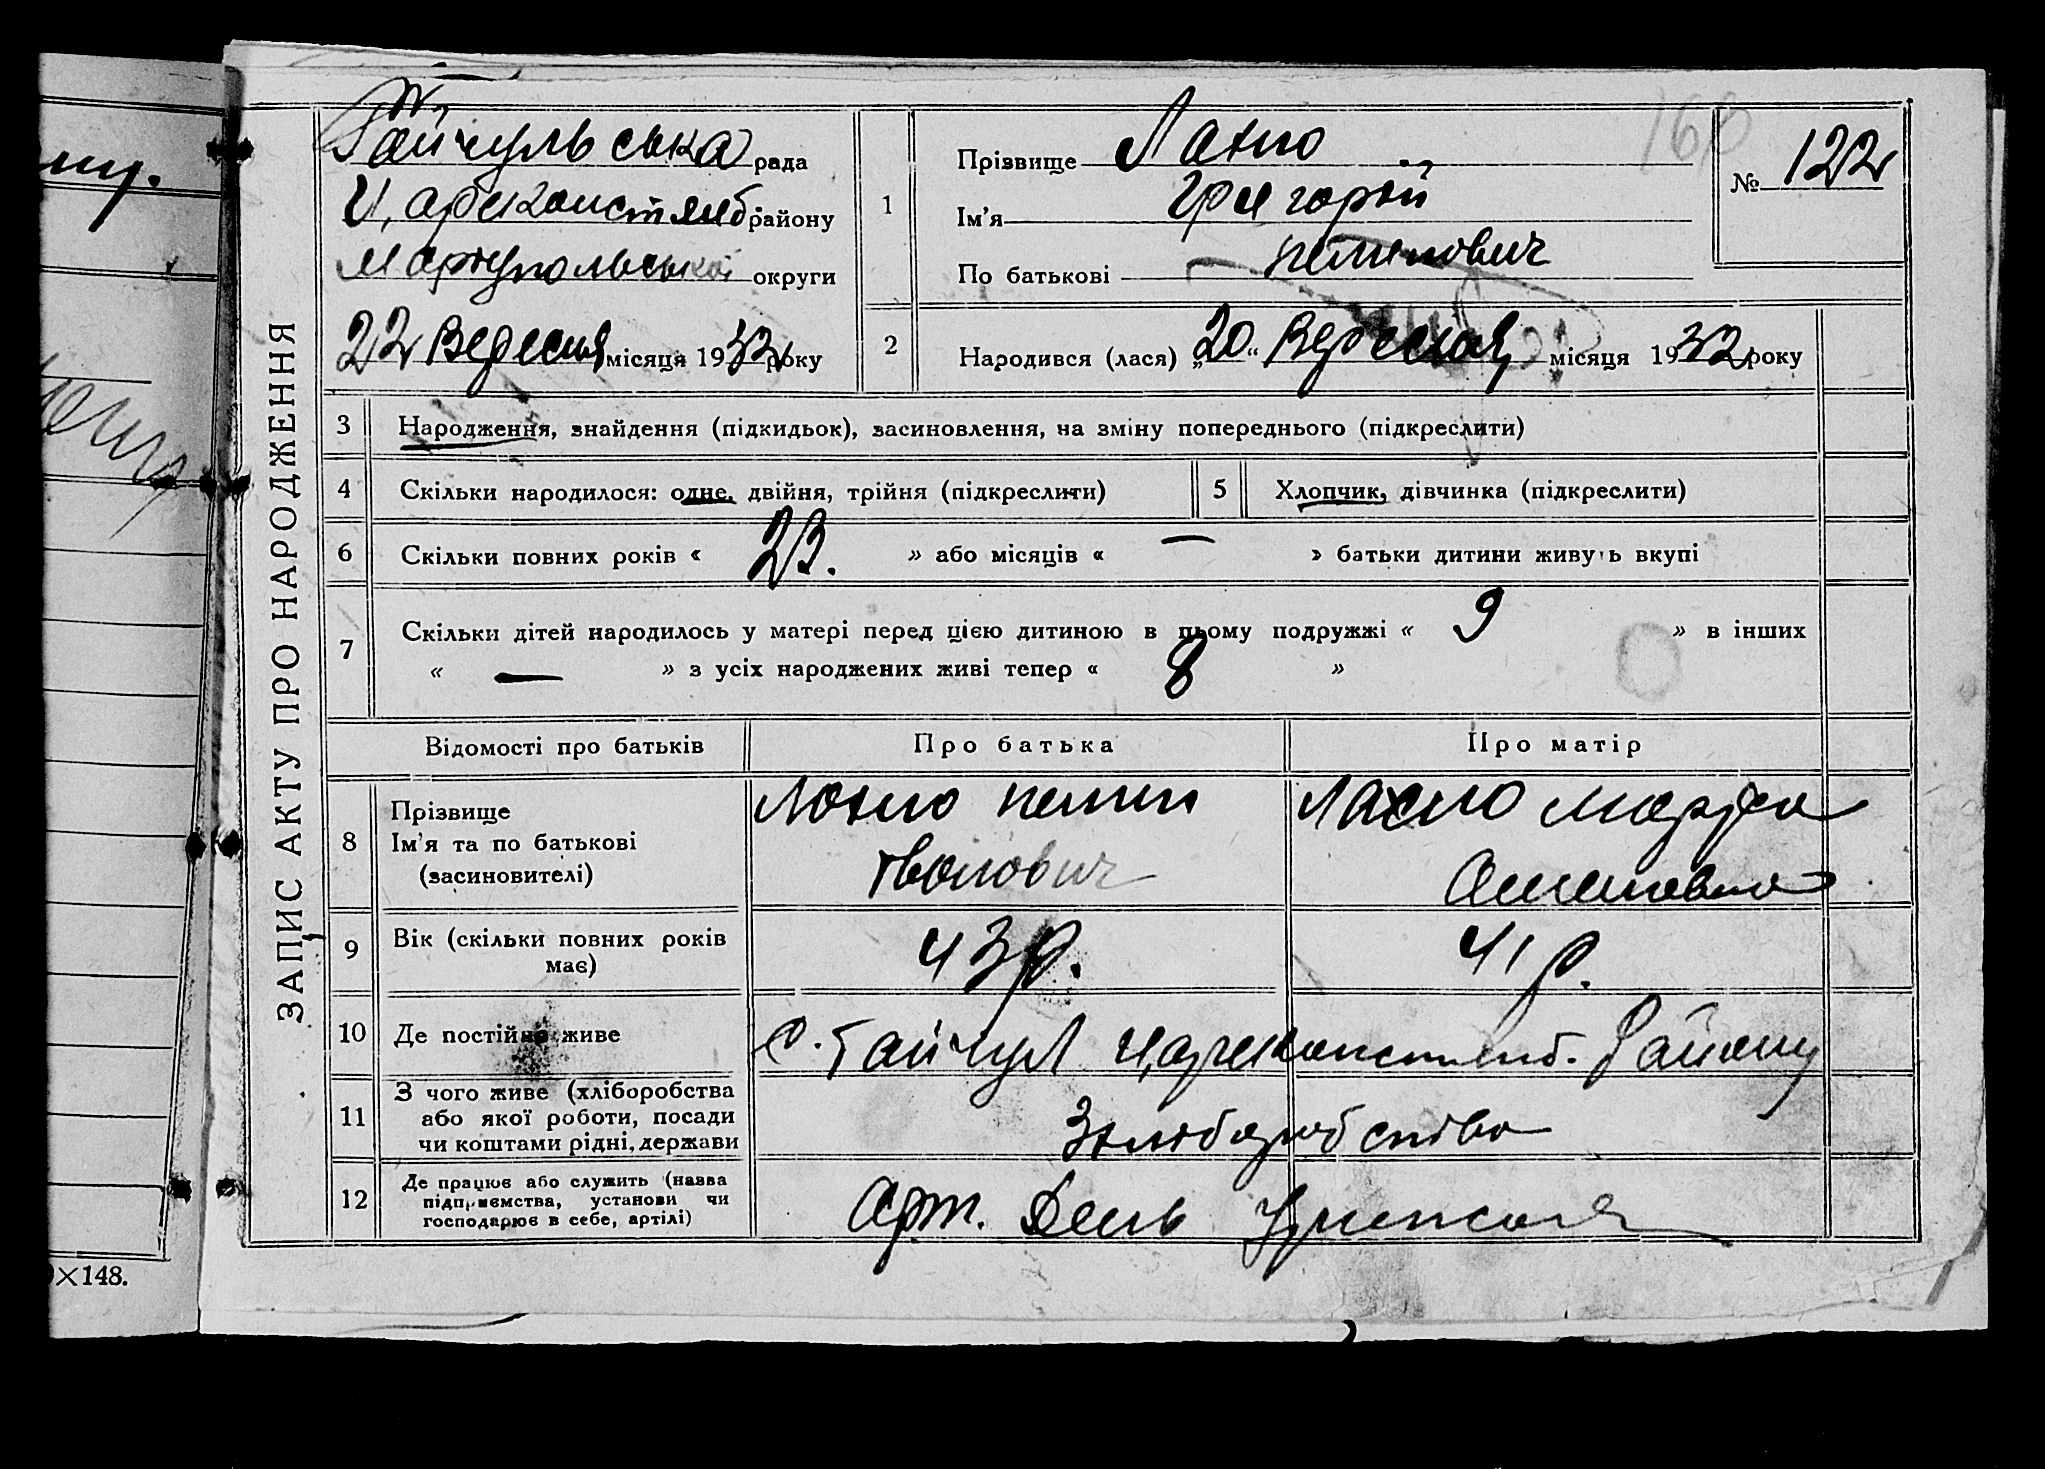 ЗАПИС АКТУ ПРО НАРОДЖЕННЯ
Гайчульська рада
Царекостянб. району
Маріупольської округи
22 Вересня місяця 1932 року
1
Прізвище Лахно
Ім'я Григорій
По батькові
168
№ 122
2
Народився (лася) „20“ Вересня місяця 1932 року
3 Народження, знайдення (підкидьок), засиновлення, на зміну попереднього (підкреслити)
4 Скільки народилося: одне, двійня, трійня (підкреслити)
5 Хлопчик, дівчинка (підкреслити)
6 Скільки повних років « 23. » або місяців « — » батьки дитини живуть вкупі
7 Скільки дітей народилось у матері перед цією дитиною в цьому подружжі « 9 » в інших
« — » з усіх народжених живі тепер « 8 »
Відомості про батьків
Про батька
Про матір
8 Прізвище
Ім'я та по батькові
(засиновителі)
Лахно
Іванович
Лахно Марфа
9 Вік (скільки повних років
має)
43 р.
41 р.
10 Де постійно живе
с. Гайчул Царекостянб. Району
11 З чого живе (хліборобства
або якої роботи, посади
чи коштами рідні, держави
Зхліборобства
12 Де працює або служить (назва
підприємства, установи чи
господарює в себе, артілі)
Арт. День Урожая
×148.